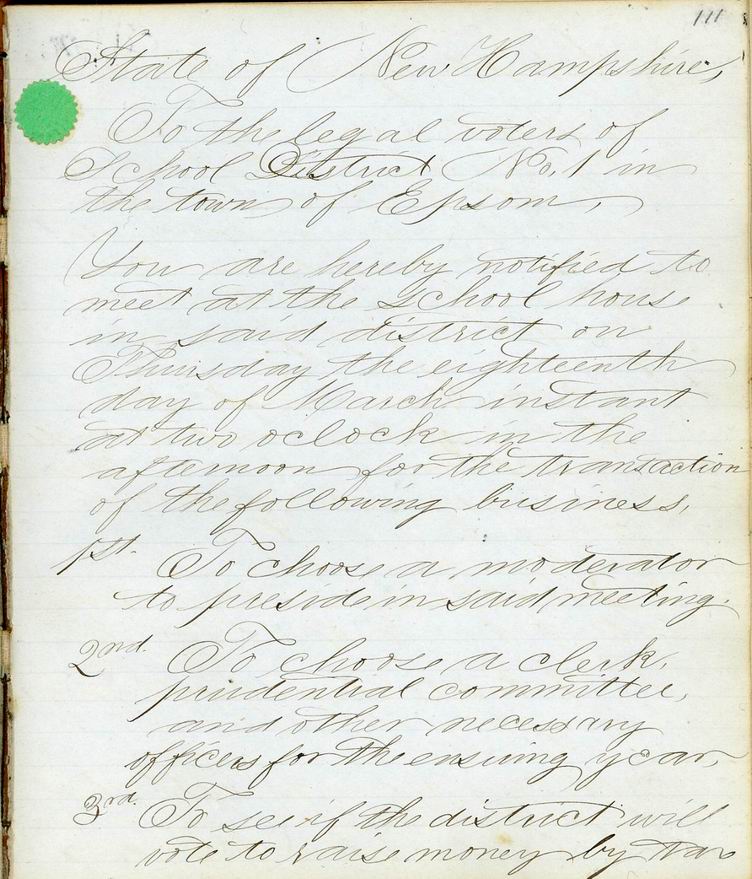 111
State of New Hampshire,
To the legal voters of
School District No. 1 in
the town of Epsom,
You are hereby notified to
meet at the School house
in said district on
Thursday the eighteenth
day of March instant
at two oclock in the
afternoon for the transaction
of the following business,
1st. To choose a moderator
to preside in said meeting.
2nd. To choose a clerk,
prudential committee,
and other necessary
officers for the ensuing year,
3rd. To see if the district will
vote to raise money by tax